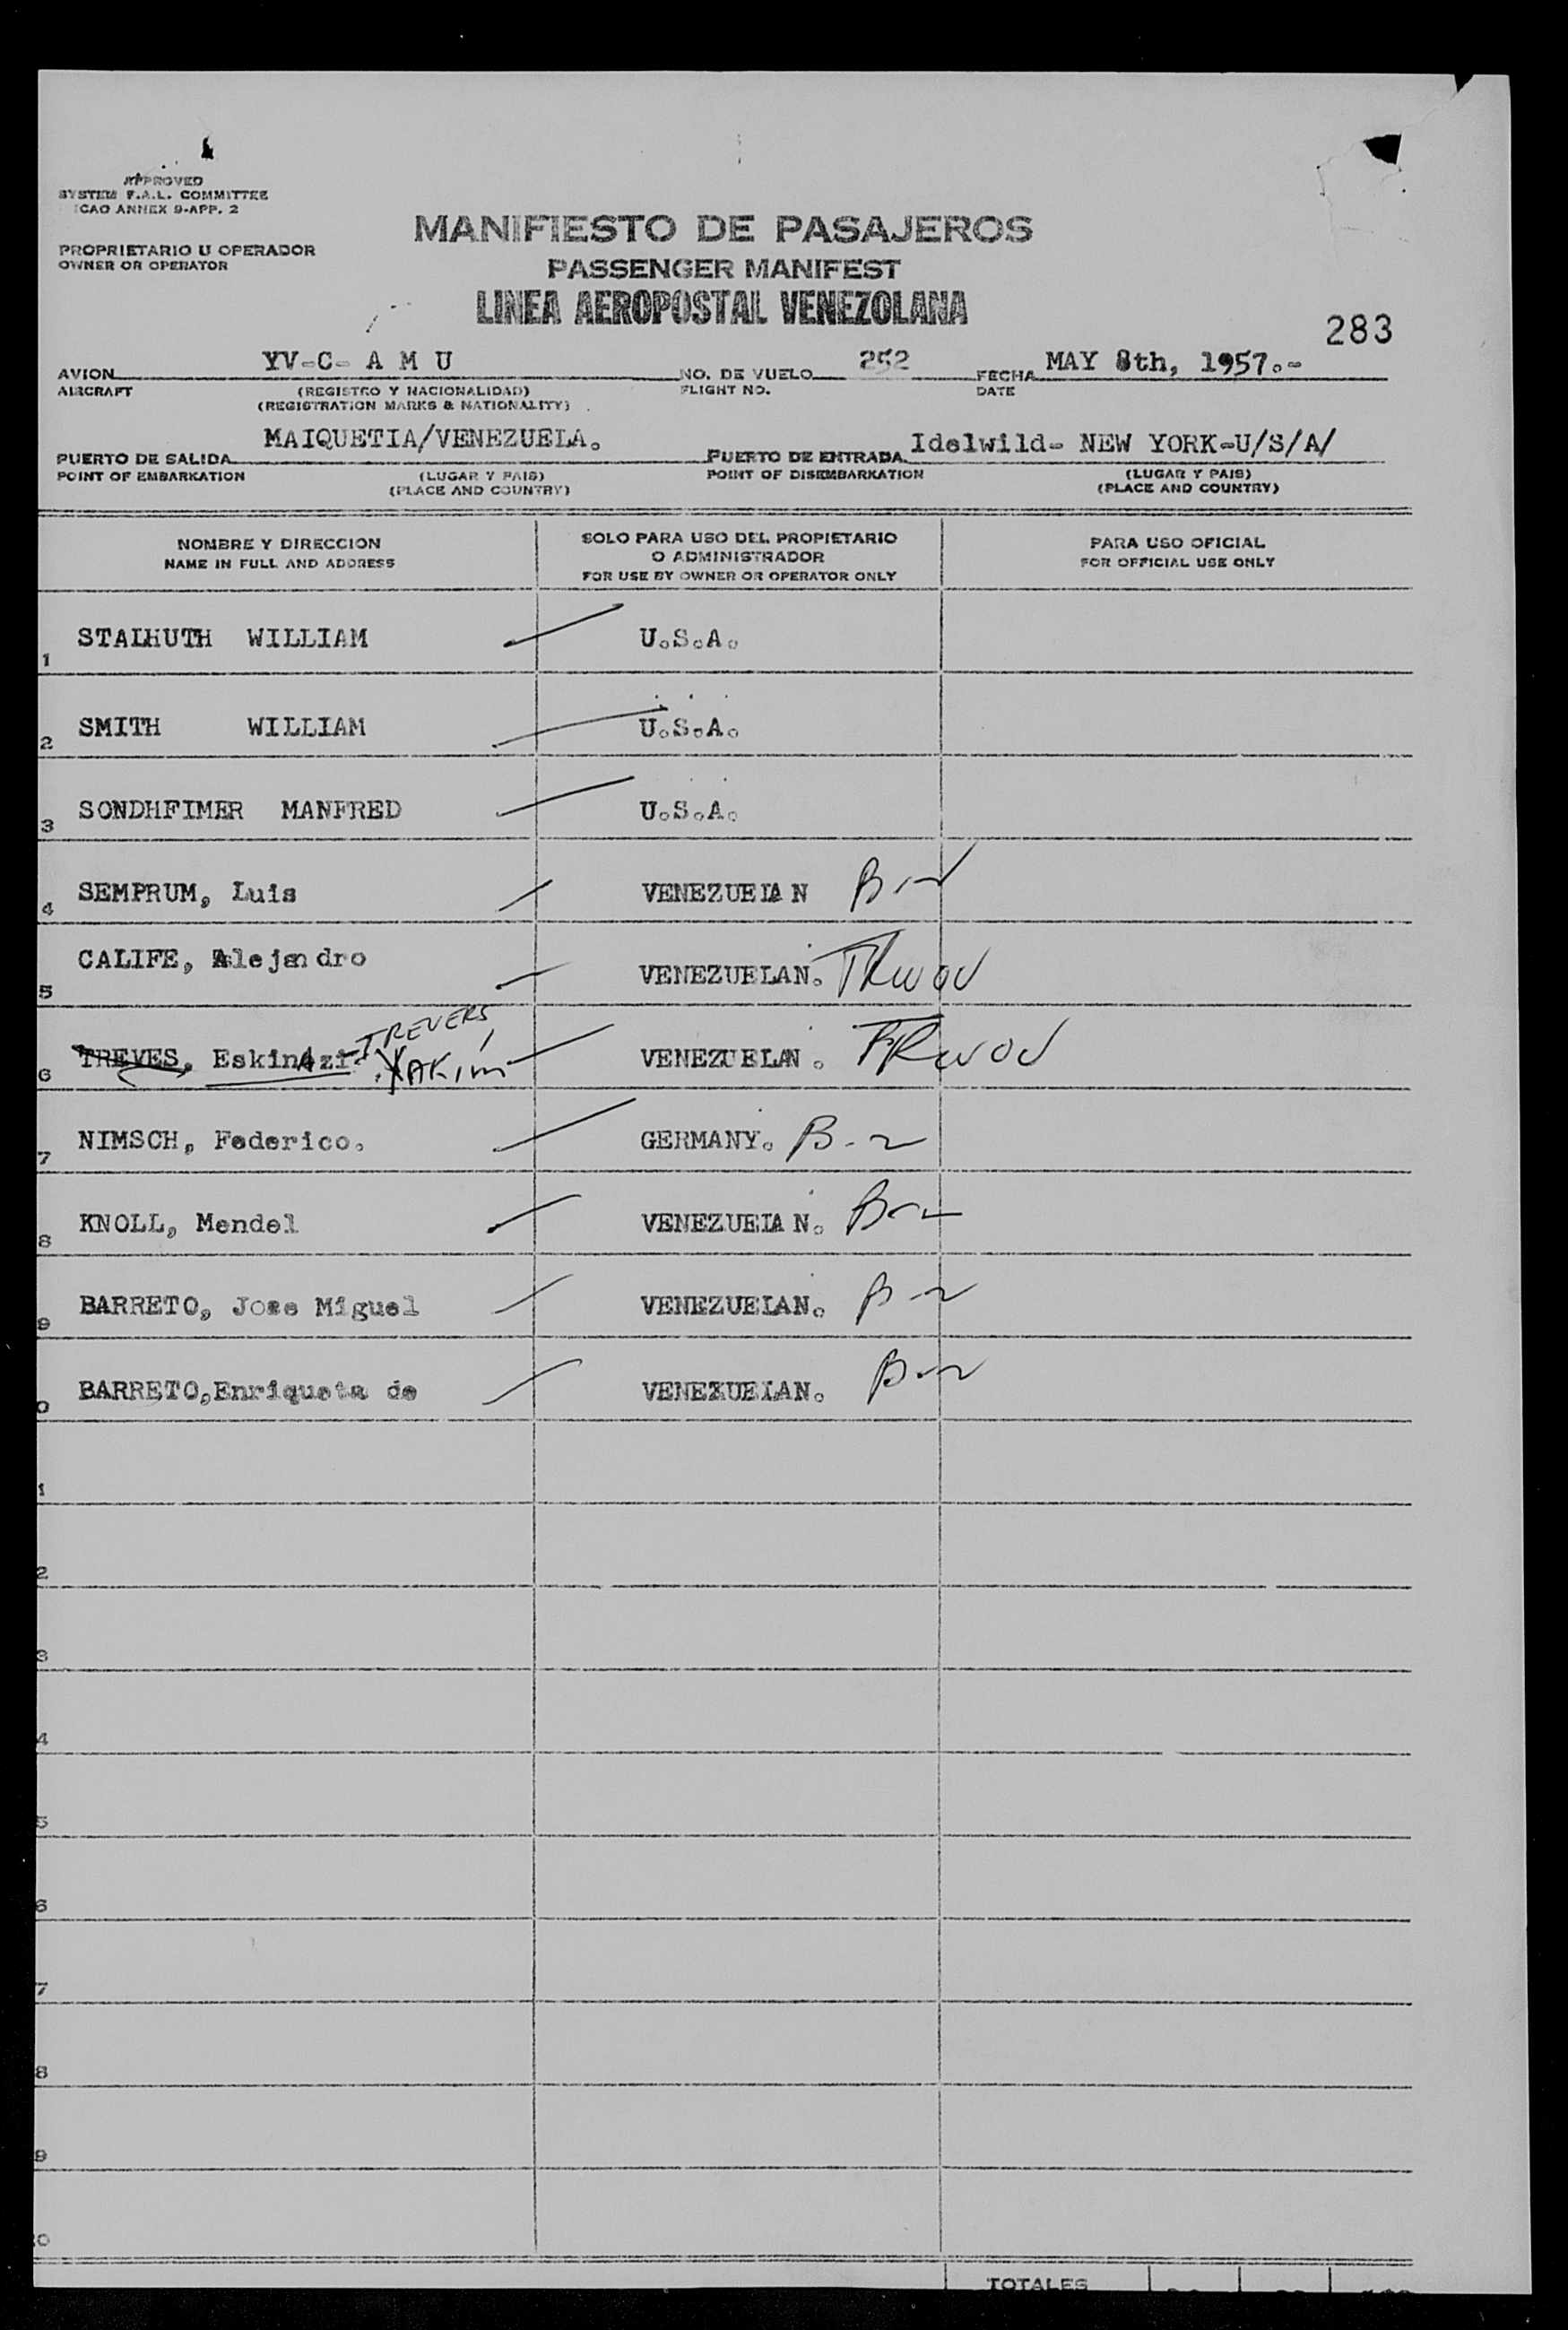 APPROVED
SYSTEM F.A.L. COMMITTEE
ICAO ANNEX 9-APP. 2
MANIFIESTO DE PASAJEROS
PROPRIETARIO U OPERADOR
OWNER OR OPERATOR
PASSENGER MANIFEST
LINEA AEROPOSTAL VENEZOLANA
283
AVION YV-C- A M U NO. DE VUELO 252 FECHA MAY 8th, 1957.-
AIRCRAFT (REGISTRO Y NACIONALIDAD) FLIGHT NO. DATE
(REGISTRATION MARKS & NATIONALITY)
PUERTO DE SALIDA MAIQUETIA/VENEZUELA. PUERTO DE ENTRADA Idelwild- NEW YORK-U/S/A/
POINT OF EMBARKATION (LUGAR Y PAIS) POINT OF DISEMBARKATION (LUGAR Y PAIS)
(PLACE AND COUNTRY) (PLACE AND COUNTRY)
NOMBRE Y DIRECCION
NAME IN FULL AND ADDRESS
SOLO PARA USO DEL PROPIETARIO
O ADMINISTRADOR
FOR USE BY OWNER OR OPERATOR ONLY
PARA USO OFICIAL
FOR OFFICIAL USE ONLY
1 STALHUTH WILLIAM U.S.A.
2 SMITH WILLIAM U.S.A.
3 SONDHFIMER MANFRED U.S.A.
4 SEMPRUM, Luis VENEZUELAN B-2
5 CALIFE, Alejandro VENEZUELAN. TRWOV
TREVERS,
6 TREVES, EskinAzi- YAKim VENEZUELAN. TRWOV
7 NIMSCH, Federico. GERMANY. B-2
8 KNOLL, Mendel VENEZUELAN. B-2
9 BARRETO, Jose Miguel VENEZUELAN. B-2
0 BARRETO,Enriqueta de VENEZUELAN. B-2
1
2
3
4
5
6
7
8
9
0
TOTALES